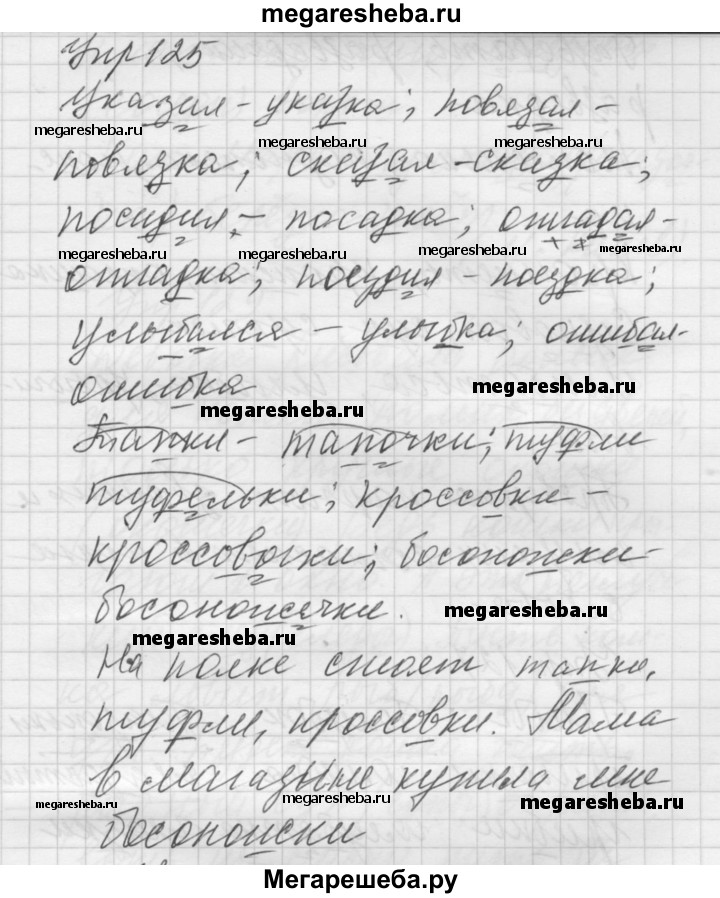 megaresheba.ru
Упр 125
Указал - указка; повязал -
megaresheba.ru megaresheba.ru megaresheba.ru
повязка; сказал - сказка;
посадил - посадка; отгадал -
megaresheba.ru megaresheba.ru megaresheba.ru megaresheba.ru
отгадка; поездка;
Улыбался - улыбка; ошибал-
ошибка megaresheba.ru
megaresheba.ru
Тапки - тапочки; туфли
туфельки; кроссовки -
кроссовочки; босоножки -
босоножечки. megaresheba.ru
megaresheba.ru
На полке стоят тапки,
туфли, кроссовки. Мама
в магазине купила мне
megaresheba.ru megaresheba.ru megaresheba.ru
босоножки
Мегарешеба.ру